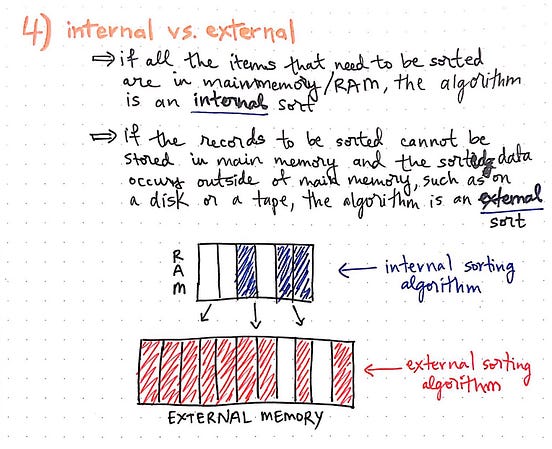 4) internal vs. external
⇒ if all the items that need to be sorted
are in main memory/RAM, the algorithm
is an internal sort
⇒ if the records to be sorted cannot be
stored in main memory and the sorted data
occurs outside of main memory, such as on
a disk or a tape, the algorithm is an external
sort
RAM
← internal sorting
algorithm
← external sorting
algorithm
EXTERNAL MEMORY